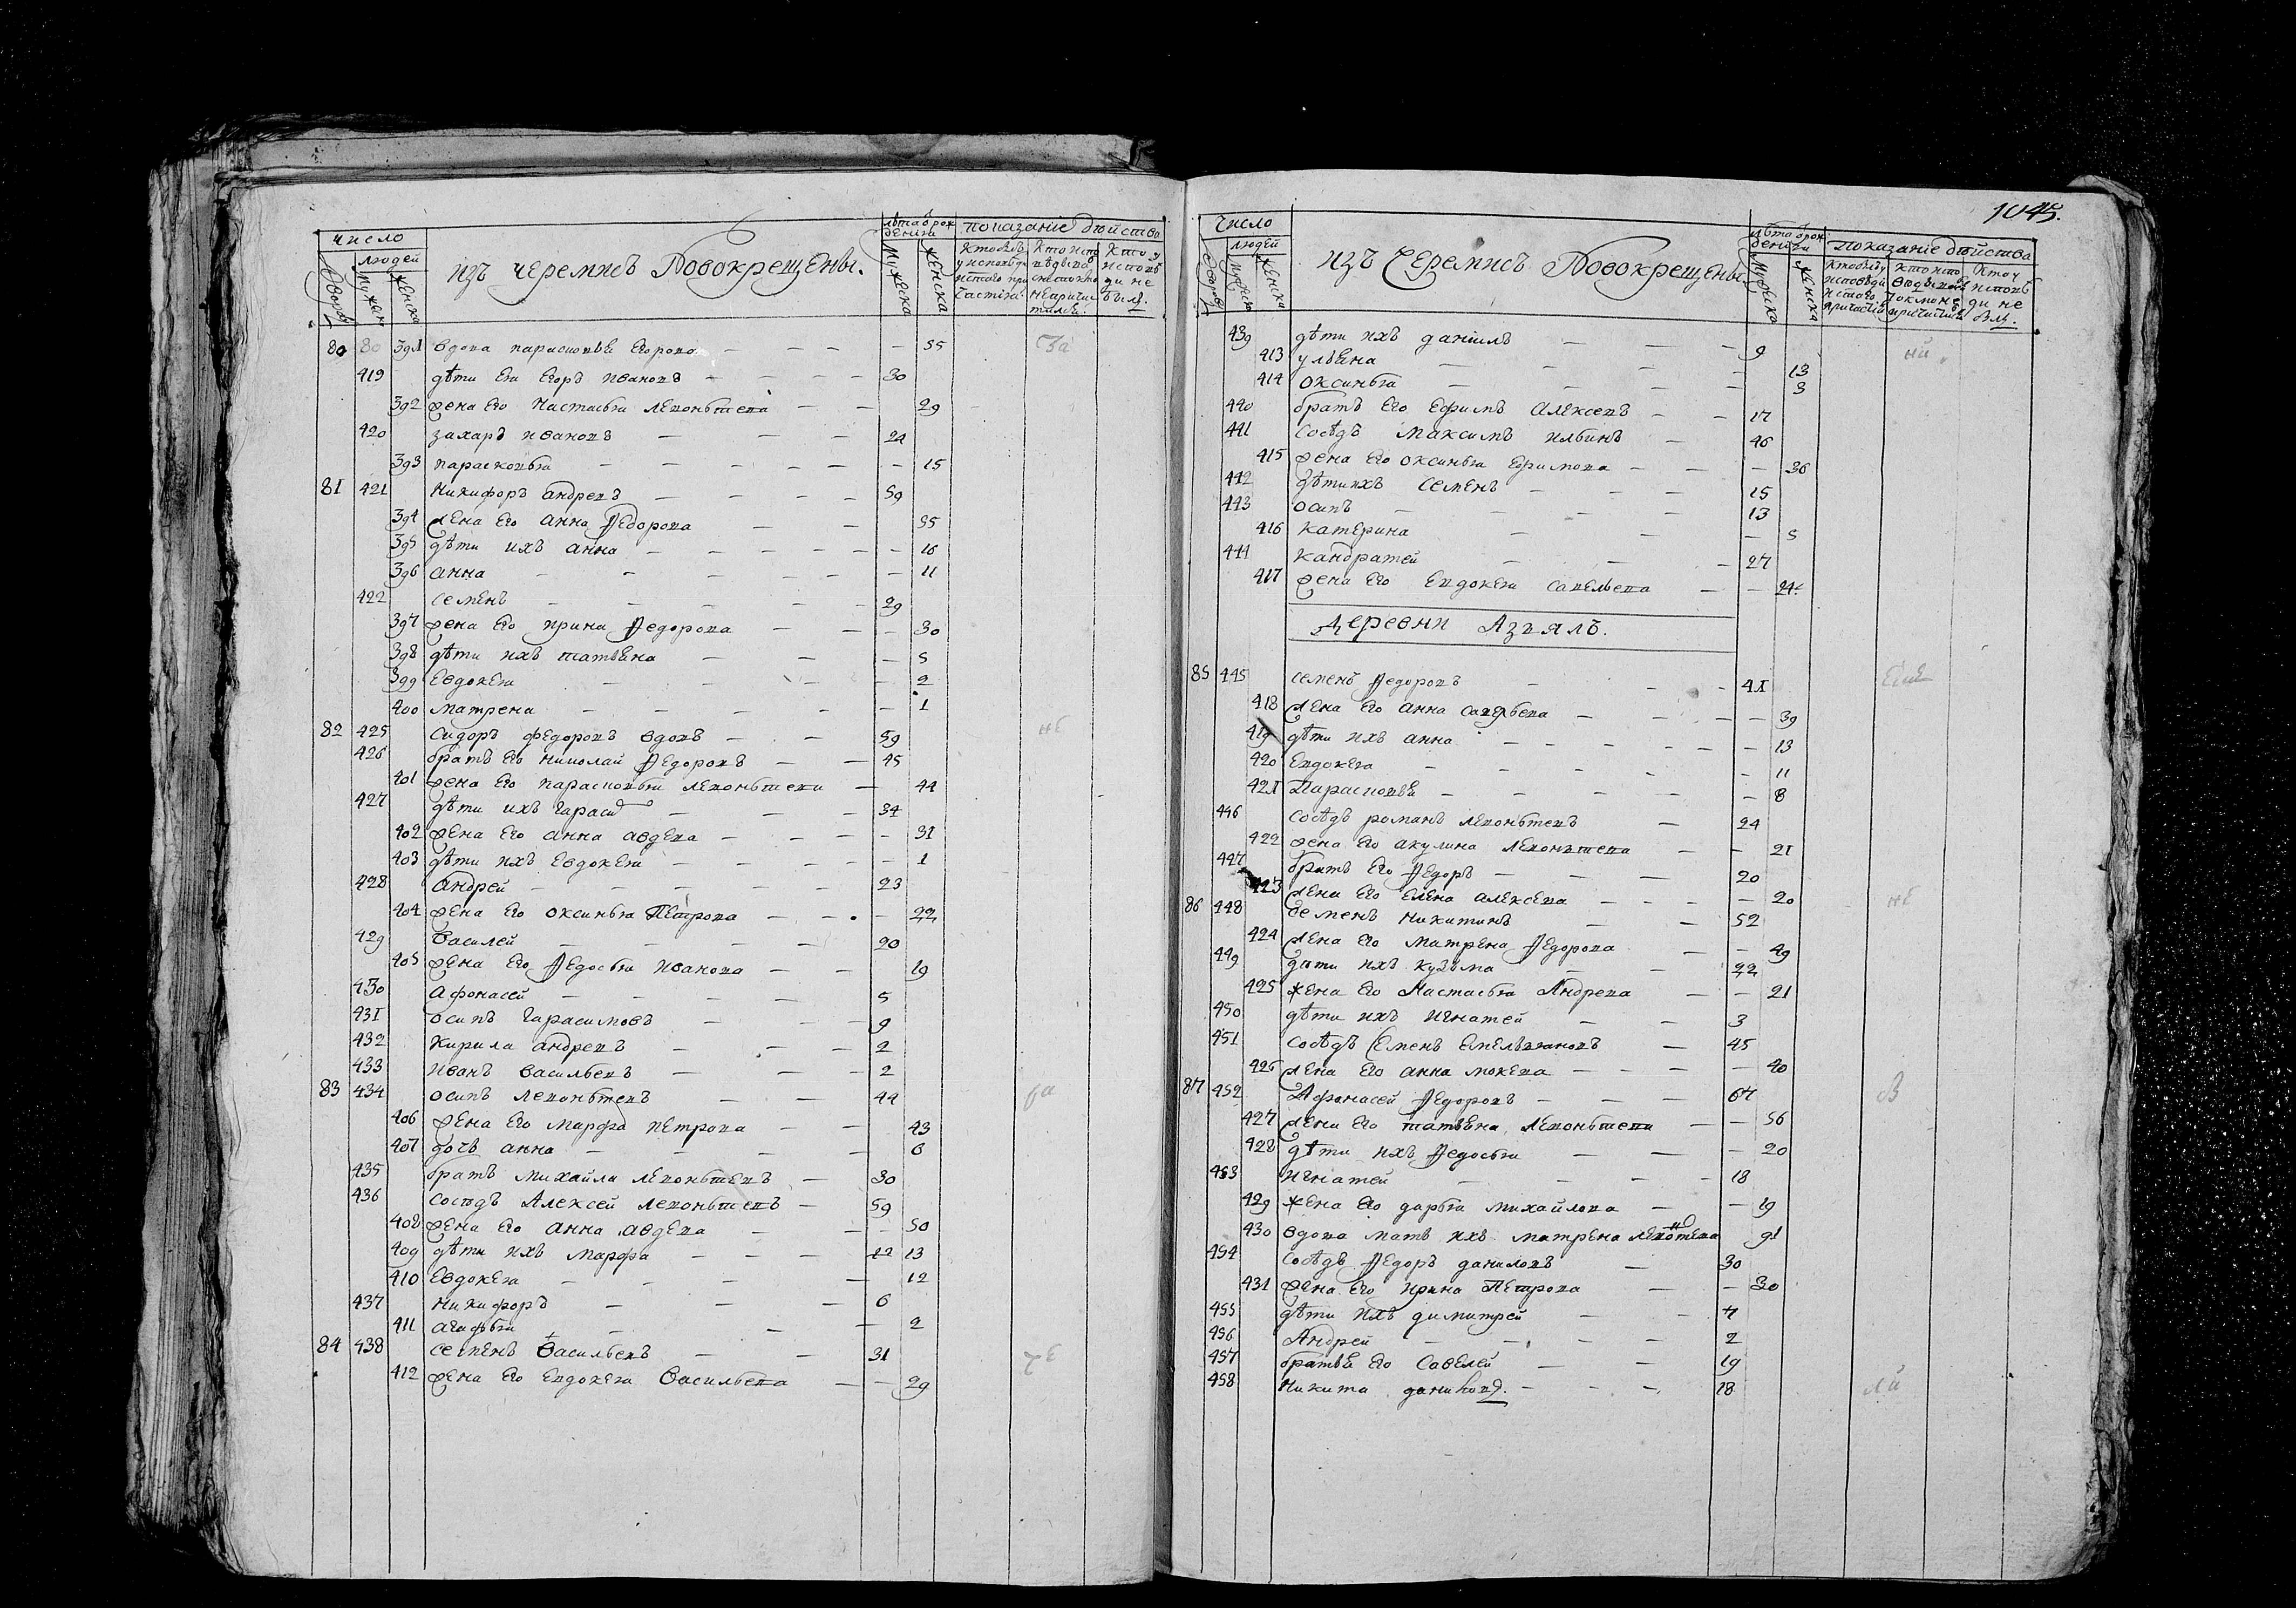 число
людей
дворов
мужска
женска
изъ черемисъ Новокрещены.
лѣта ѿ рождения
мужска
женска
показание действа
80 80 391 вдова парасковья егорова — 55 За
419 дѣти Ея Егоръ ивановъ — 30
392 жена Его Настасья леонтьева — 29
420 захаръ ивановъ — 24
393 парасковья — 15
81 421 Никифоръ андреевъ — 59
394 жена Его анна Ѳедорова — 55
395 дѣти ихъ анна — 16
396 анна — 11
422 семенъ — 29
397 жена Его ирина Ѳедорова — 30
398 дѣти ихъ татьяна — 5
399 Евдокея — 2
400 матрена — 1
82 425 Сидоръ федоровъ вдовъ — 59 не
426 братъ Его николай Ѳедоровъ — 45
401 жена Его парасковья леонтьева — 44
427 дѣти ихъ Гарасимъ — 34
402 жена Его анна авдеева — 31
403 дѣти ихъ Евдокея — 1
428 андрей — 23
404 жена Его оксинья Петрова — 22
429 Василей — 20
405 жена Его Ѳедосья иванова — 19
430 афонасей — 5
431 осипъ Гарасимовъ — 9
432 кирила андреевъ — 2
433 иванъ васильевъ — 2
83 434 осипъ леонтьевъ — 44
406 жена Его марфа петрова — 43
407 дочь анна — 6
435 братъ михайла леонтьевъ — 30
436 сосѣдъ Алексей леонтьевъ — 59
408 жена Его анна авдеева — 50
409 дѣти ихъ марфа — 13
410 Евдокея — 12
437 никифоръ — 6
411 агафья — 2
84 438 семенъ васильевъ — 31
412 жена Его Евдокея Васильева — 29
1045.
Число
людей
дворов
мужска
женска
изъ Черемисъ Новокрещены
лѣта ѿ рождения
мужска
женска
Показание действа
439 дѣти ихъ даниилъ — 9
413 ульяна — 13
414 оксинья — 3
440 братъ Его Ефимъ алексеевъ — 17
441 сосѣдъ Максимъ ильинъ — 46
415 жена Его оксинья Ефимова — 36
442 дѣти ихъ семенъ — 15
443 осипъ — 13
416 катерина — 5
444 кандратей — 27
417 жена Его Евдокея савельева — 24
Деревни Азъялъ.
85 445 семенъ Ѳедоровъ — 41
418 жена Его анна савельева — 39
419 дѣти ихъ анна — 13
420 Евдокея — 11
421 Парасковья — 8
446 сосѣдъ романъ леонтьевъ — 24
422 жена Его акулина леонтьева — 21
447 братъ Его Ѳедоръ — 20
423 жена Его Елена алексеева — 20
86 448 семенъ никитинъ — 52 не
424 жена Его матрена Ѳедорова — 49
449 дѣти ихъ кузьма — 22
425 жена Его Настасья Андреева — 21
450 дѣти ихъ игнатей — 3
451 сосѣдъ Семенъ Емельяновъ — 45
426 жена Его анна мокеева — 40
87 452 Афонасей Ѳедоровъ — 67 В
427 жена Его татьяна леонтьева — 56
428 дѣти ихъ Ѳедосья — 20
453 игнатей — 18
429 жена Его дарья михайлова — 19
430 вдова мать ихъ матрена леонтьева 91
454 сосѣдъ Ѳедоръ даниловъ — 30
431 жена Его ирина Петрова — 30
455 дѣти ихъ димитрей — 4
456 Андрей — 2
457 братья Его Савелей — 19
458 никита даниловъ. — 18